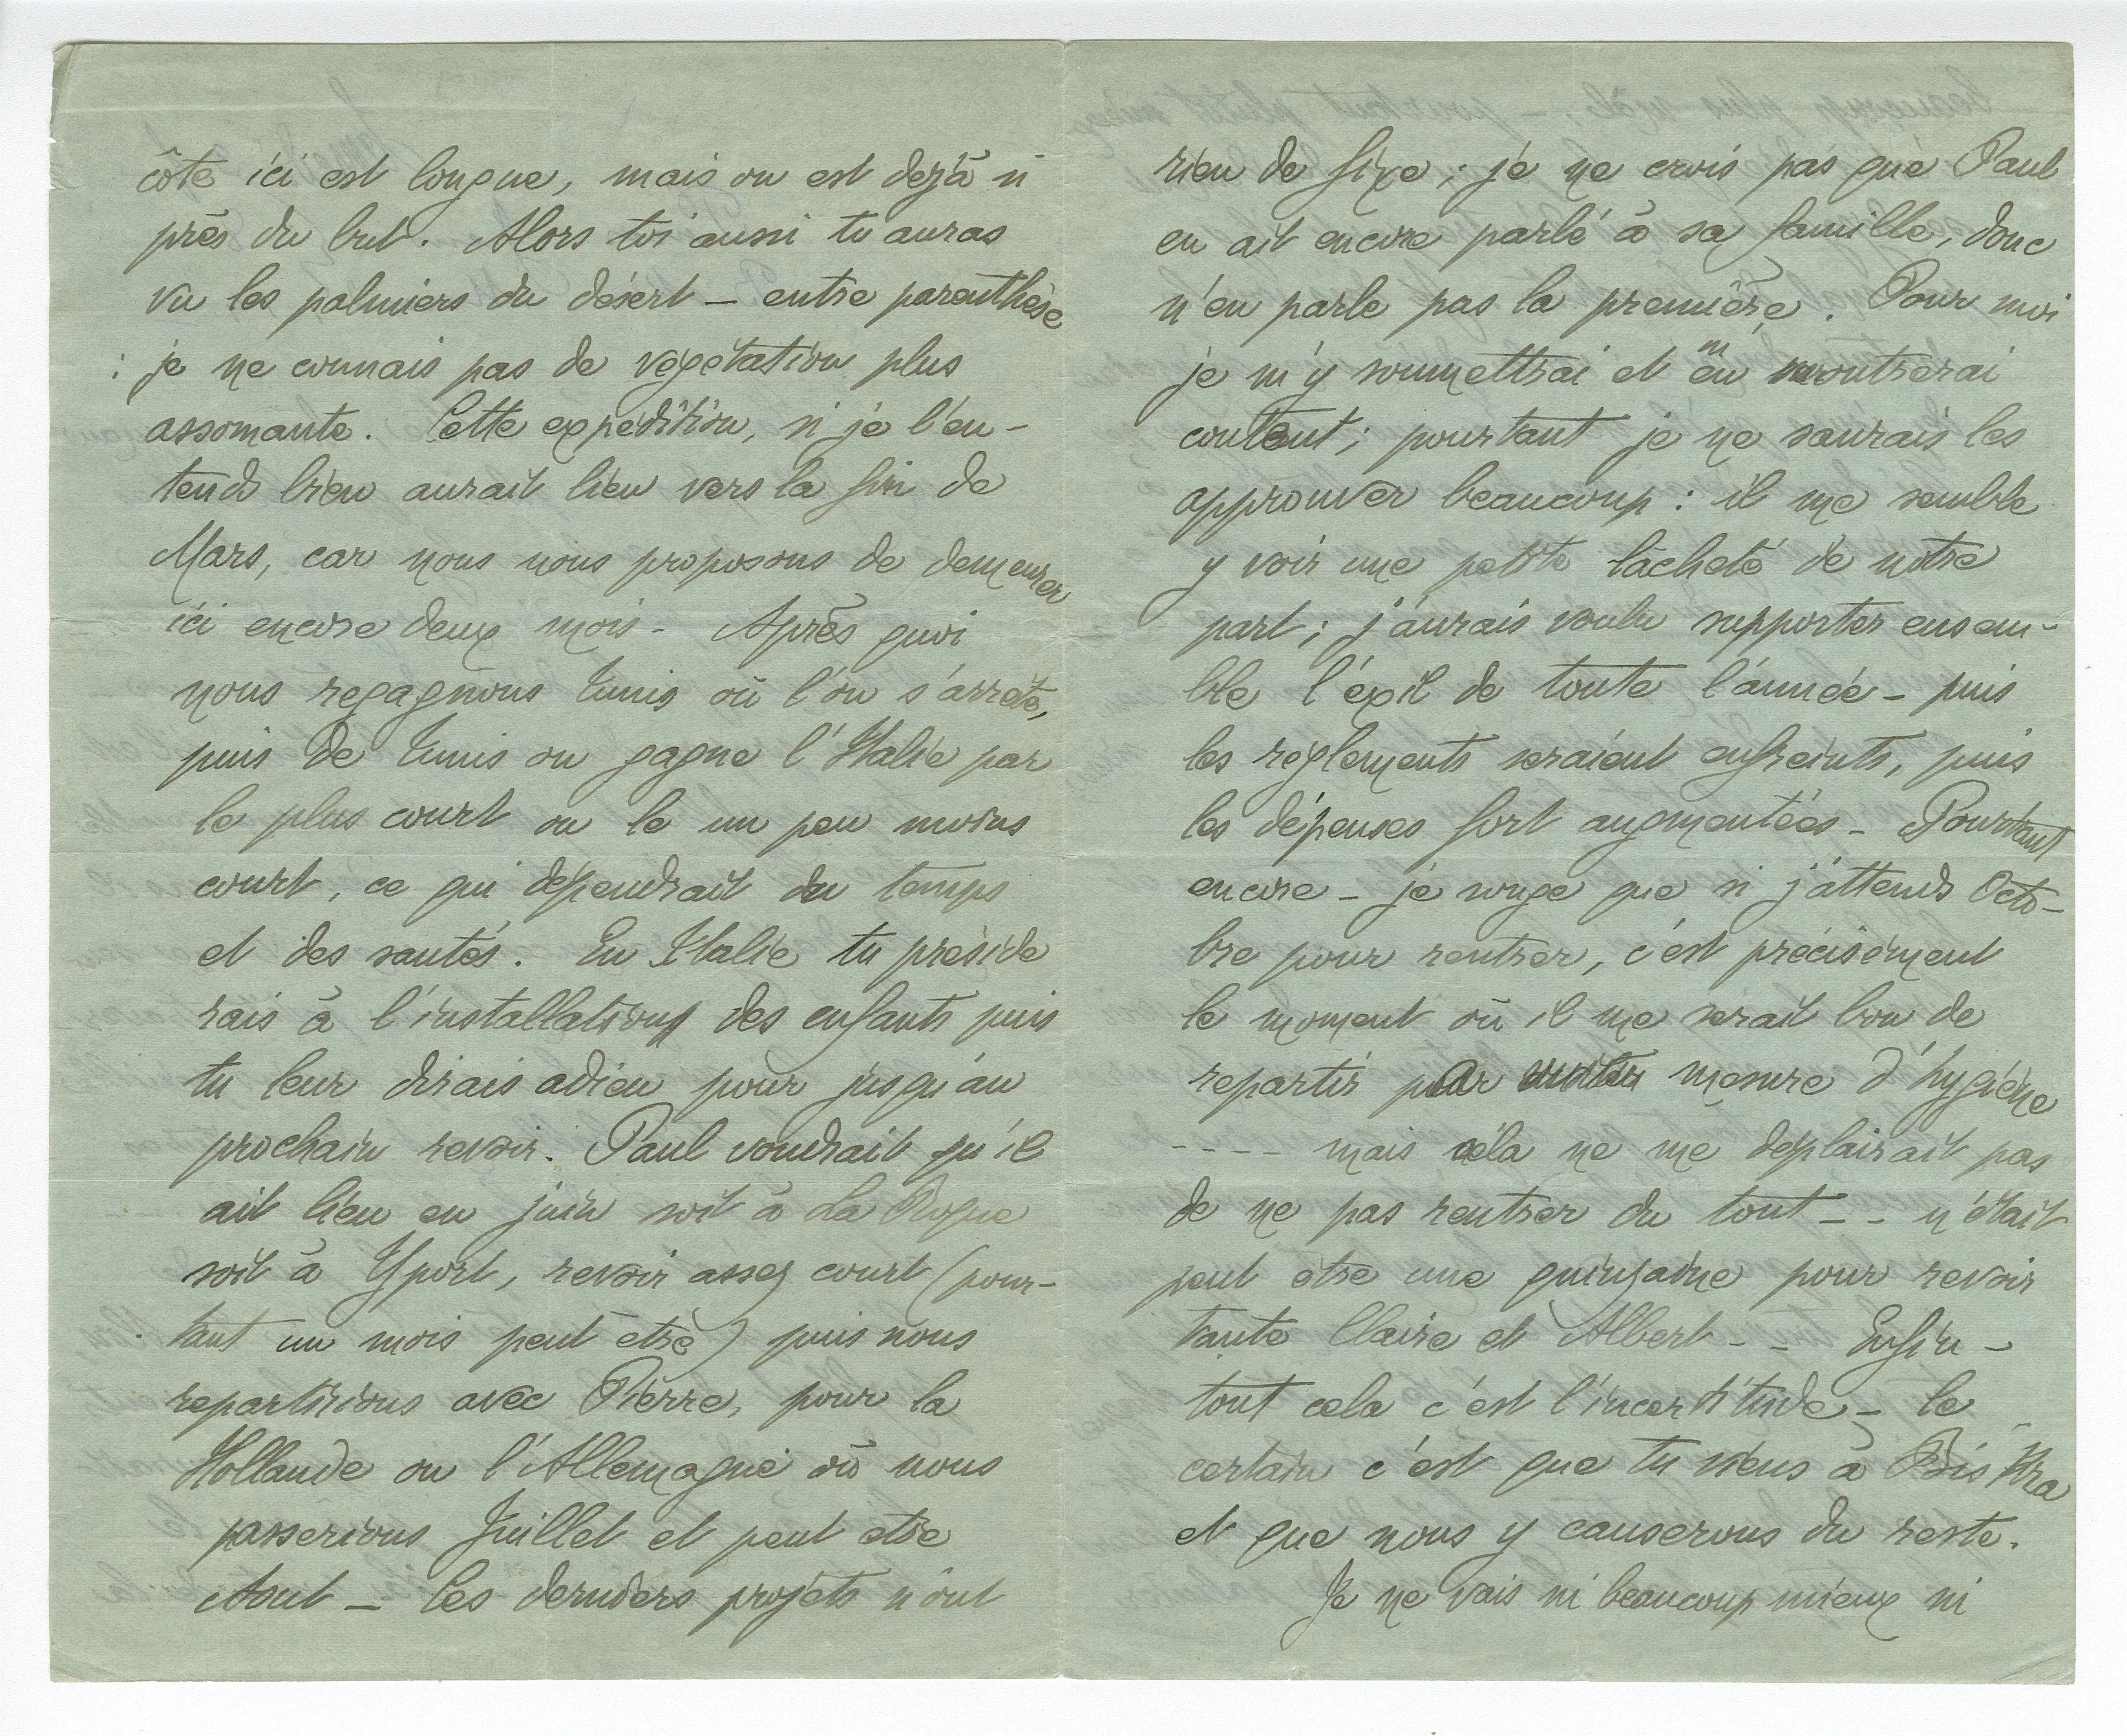 côte ici est longue, mais on est déjà si
près du but. Alors toi aussi tu auras
vu les palmiers du désert — entre parenthèse
: je ne connais pas de végétation plus
assomante. Cette expédition, si je l'en-
tends bien aurait lieu vers la fin de
Mars, car nous nous proposons de demeurer
ici encore deux mois - Après quoi
nous regagnons Tunis où l'on s'arrête,
puis de Tunis on gagne l'Italie par
le plus court ou le un peu moins
court, ce qui dépendrait du temps
et des santés. En Italie tu préside
rais à l'installation des enfants puis
tu leur dirais adieu pour jusqu'au
prochain revoir. Paul voudrait qu'il
ait lieu en juin soit à La Roque
soit à Yport, revoir assez court (pour-
tant un mois peut être) puis nous
repartirions avec Pierre, pour la
Hollande ou l'Allemagne où nous
passerions Juillet et peut etre
Aout — les derniers projets n'ont
rien de fixe ; je ne crois pas que Paul
en ait encore parlé à sa famille, donc
n'en parle pas la première. Pour moi
je m'y soumettrai et m'en montrerai
content ; pourtant je ne saurais les
approuver beaucoup : il me semble
y voir une petite lâcheté de notre
part ; j'aurais voulu supporter ensem-
ble l'éxil de toute l'année - puis
les règlements seraient enfreints, puis
les dépenses fort augmentées - Pourtant
encore - je songe que si j'attends Octo-
bre pour rentrer, c'est précisément
le moment où il me serait bon de
repartir par mesure d'hygiène
---- mais cela ne me déplairait pas
de ne pas rentrer du tout -- n'était
peut être une quinzaine pour revoir
tante Claire et Albert -- Enfin -
tout cela c'est l'incertitude - le
certain c'est que tu viens à Biskra
et que nous y causerons du reste.
Je ne vais ni beaucoup mieux ni